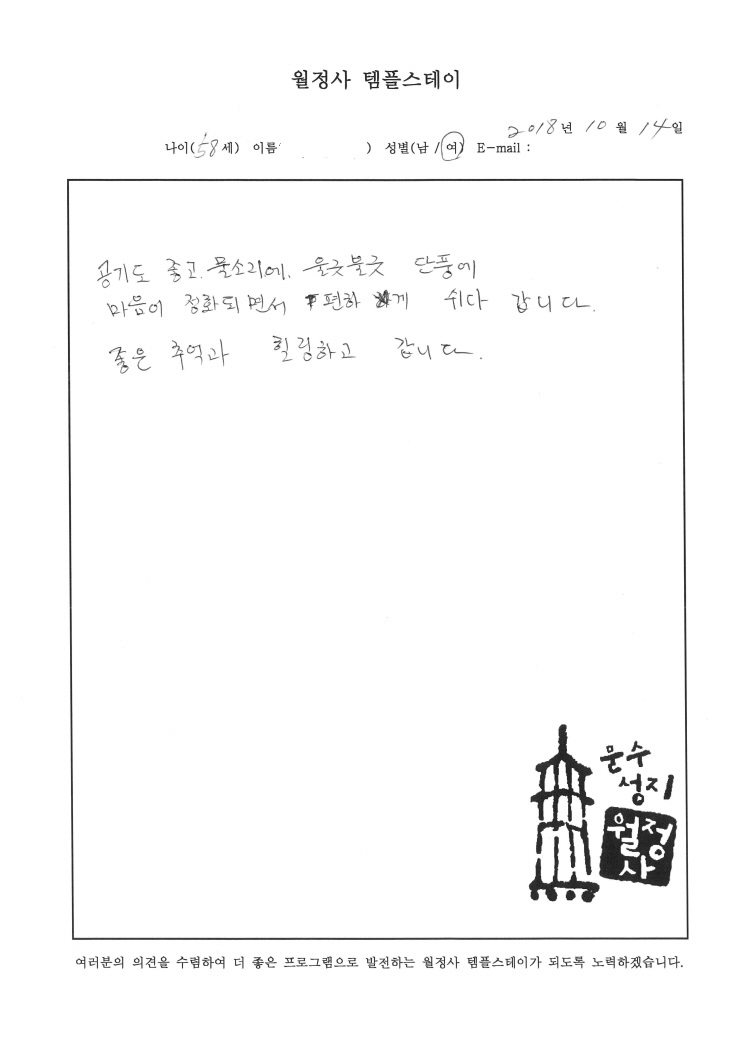 월정사 템플스테이
2018년 10월 14일
나이(58세) 이름 ) 성별(남/여) E-mail :
공기도 좋고. 물소리에. 울긋불긋 단풍에
마음이 정화되면서 편하게 쉬다 갑니다.
좋은 추억과 힐링하고 갑니다.
문수
성지
월정
사
여러분의 의견을 수렴하여 더 좋은 프로그램으로 발전하는 월정사 템플스테이가 되도록 노력하겠습니다.